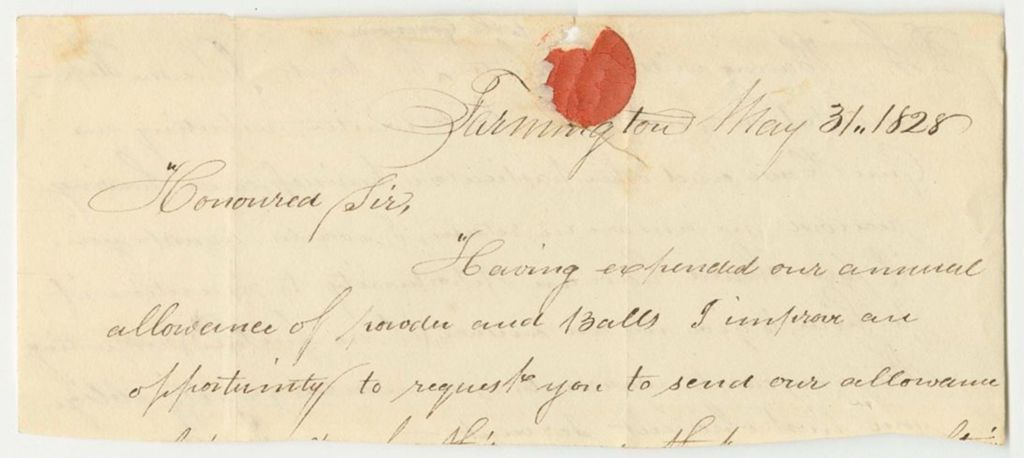 Farmington May 31,, 1828
Honoured Sir,
Having expended our annual
allowance of powder and Balls I improve an
opportunity to request you to send our allowance